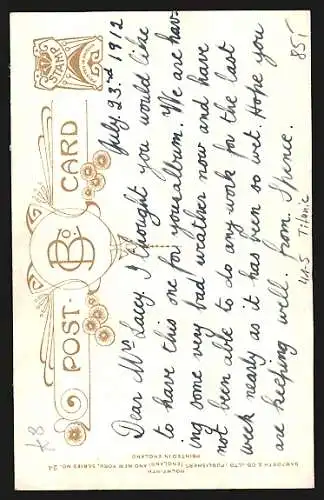 POST CARD
STAMP
B & Co.
July 23rd 1912
Dear Mrs Lacey. I thought you would like
to have this one for your album. We are hav-
ing some very bad weather now and have
not been able to do any work for the last
week nearly as it has been so wet. Hope you
are keeping well. from.
44-5 Titanic
BAMFORTH & CO., LTD., PUBLISHERS, HOLMFIRTH (ENGLAND) AND NEW YORK, SERIES NO. 24
PRINTED IN ENGLAND